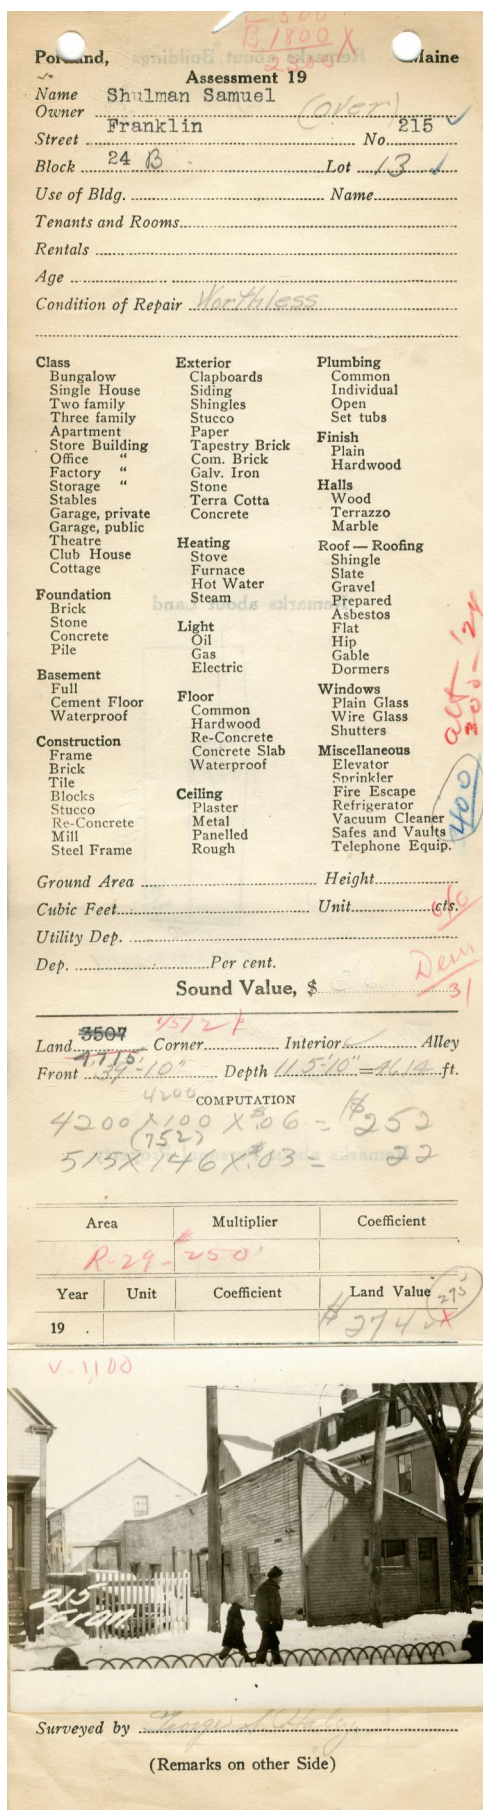 B 1800 X
Portland, Maine
Assessment 19
Name Shulman Samuel
Owner (over)
Street Franklin No. 215
Block 24 B Lot 13
Use of Bldg. Name
Tenants and Rooms
Rentals
Age
Condition of Repair Worthless
Class
Bungalow
Single House
Two family
Three family
Apartment
Store Building
Office "
Factory "
Storage "
Stables
Garage, private
Garage, public
Theatre
Club House
Cottage
Foundation
Brick
Stone
Concrete
Pile
Basement
Full
Cement Floor
Waterproof
Construction
Frame
Brick
Tile
Blocks
Stucco
Re-Concrete
Mill
Steel Frame
Exterior
Clapboards
Siding
Shingles
Stucco
Paper
Tapestry Brick
Com. Brick
Galv. Iron
Stone
Terra Cotta
Concrete
Heating
Stove
Furnace
Hot Water
Steam
Light
Oil
Gas
Electric
Floor
Common
Hardwood
Re-Concrete
Concrete Slab
Waterproof
Ceiling
Plaster
Metal
Panelled
Rough
Plumbing
Common
Individual
Open
Set tubs
Finish
Plain
Hardwood
Halls
Wood
Terrazzo
Marble
Roof — Roofing
Shingle
Slate
Gravel
Prepared
Asbestos
Flat
Hip
Gable
Dormers
Windows
Plain Glass
Wire Glass
Shutters
Miscellaneous
Elevator
Sprinkler
Fire Escape
Refrigerator
Vacuum Cleaner
Safes and Vaults
Telephone Equip.
alt- '24
300-
400
Ground Area Height
Cubic Feet Unit cts.
Utility Dep.
Dep. Per cent.
Dem
31
Sound Value, $
3507
Land 4,715 Corner Interior Alley
Front 39'-10" Depth 115'-10" = 4614 ft.
4200
COMPUTATION
4200 X 100 X $.06 = $252
(752)
515 X 146 X .03 = 22
Area Multiplier Coefficient
R-29- $250
Year Unit Coefficient Land Value 275
19 $274 X
V-1,100
215
Surveyed by
(Remarks on other Side)